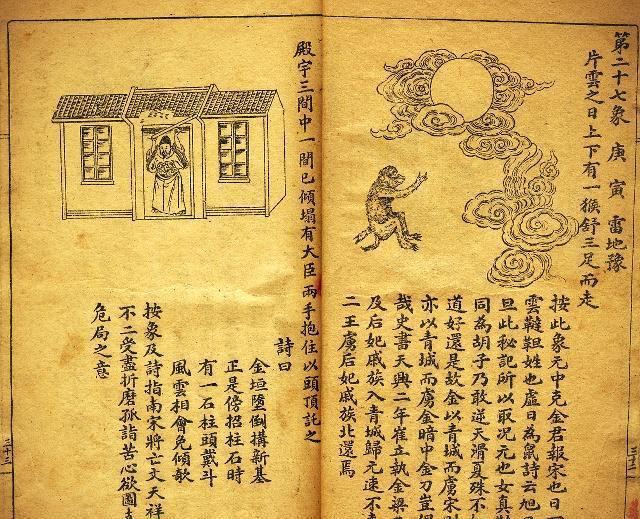 第二十七象 庚寅 雷地豫
片雲之日上下有一猴舒三足而走
按此象元中克金君報宋也日
雲韃靼姓也虛日為氣詩云旭
旦此秘記所以取况元也女真
同為胡子乃敢逆天滑夏殊不
道好還是故金以青城而虜宋
亦以青城而虜金暗中金刀豈
哉史書天興二年崔立執金梁
及后妃戚族入青城歸元速不
二王虜后妃戚族北還焉
殿宇三間中一間已傾塌有大臣兩手抱住以頭頂託之
詩曰
金垣墮倒搆新基
正是傍招柱石時
有一石柱頭戴斗
風雲相會免傾欹
按象及詩指南宋將亡文天祥
不二受盡折磨孤詣苦心欲圖
危局之意
三十三
三十二